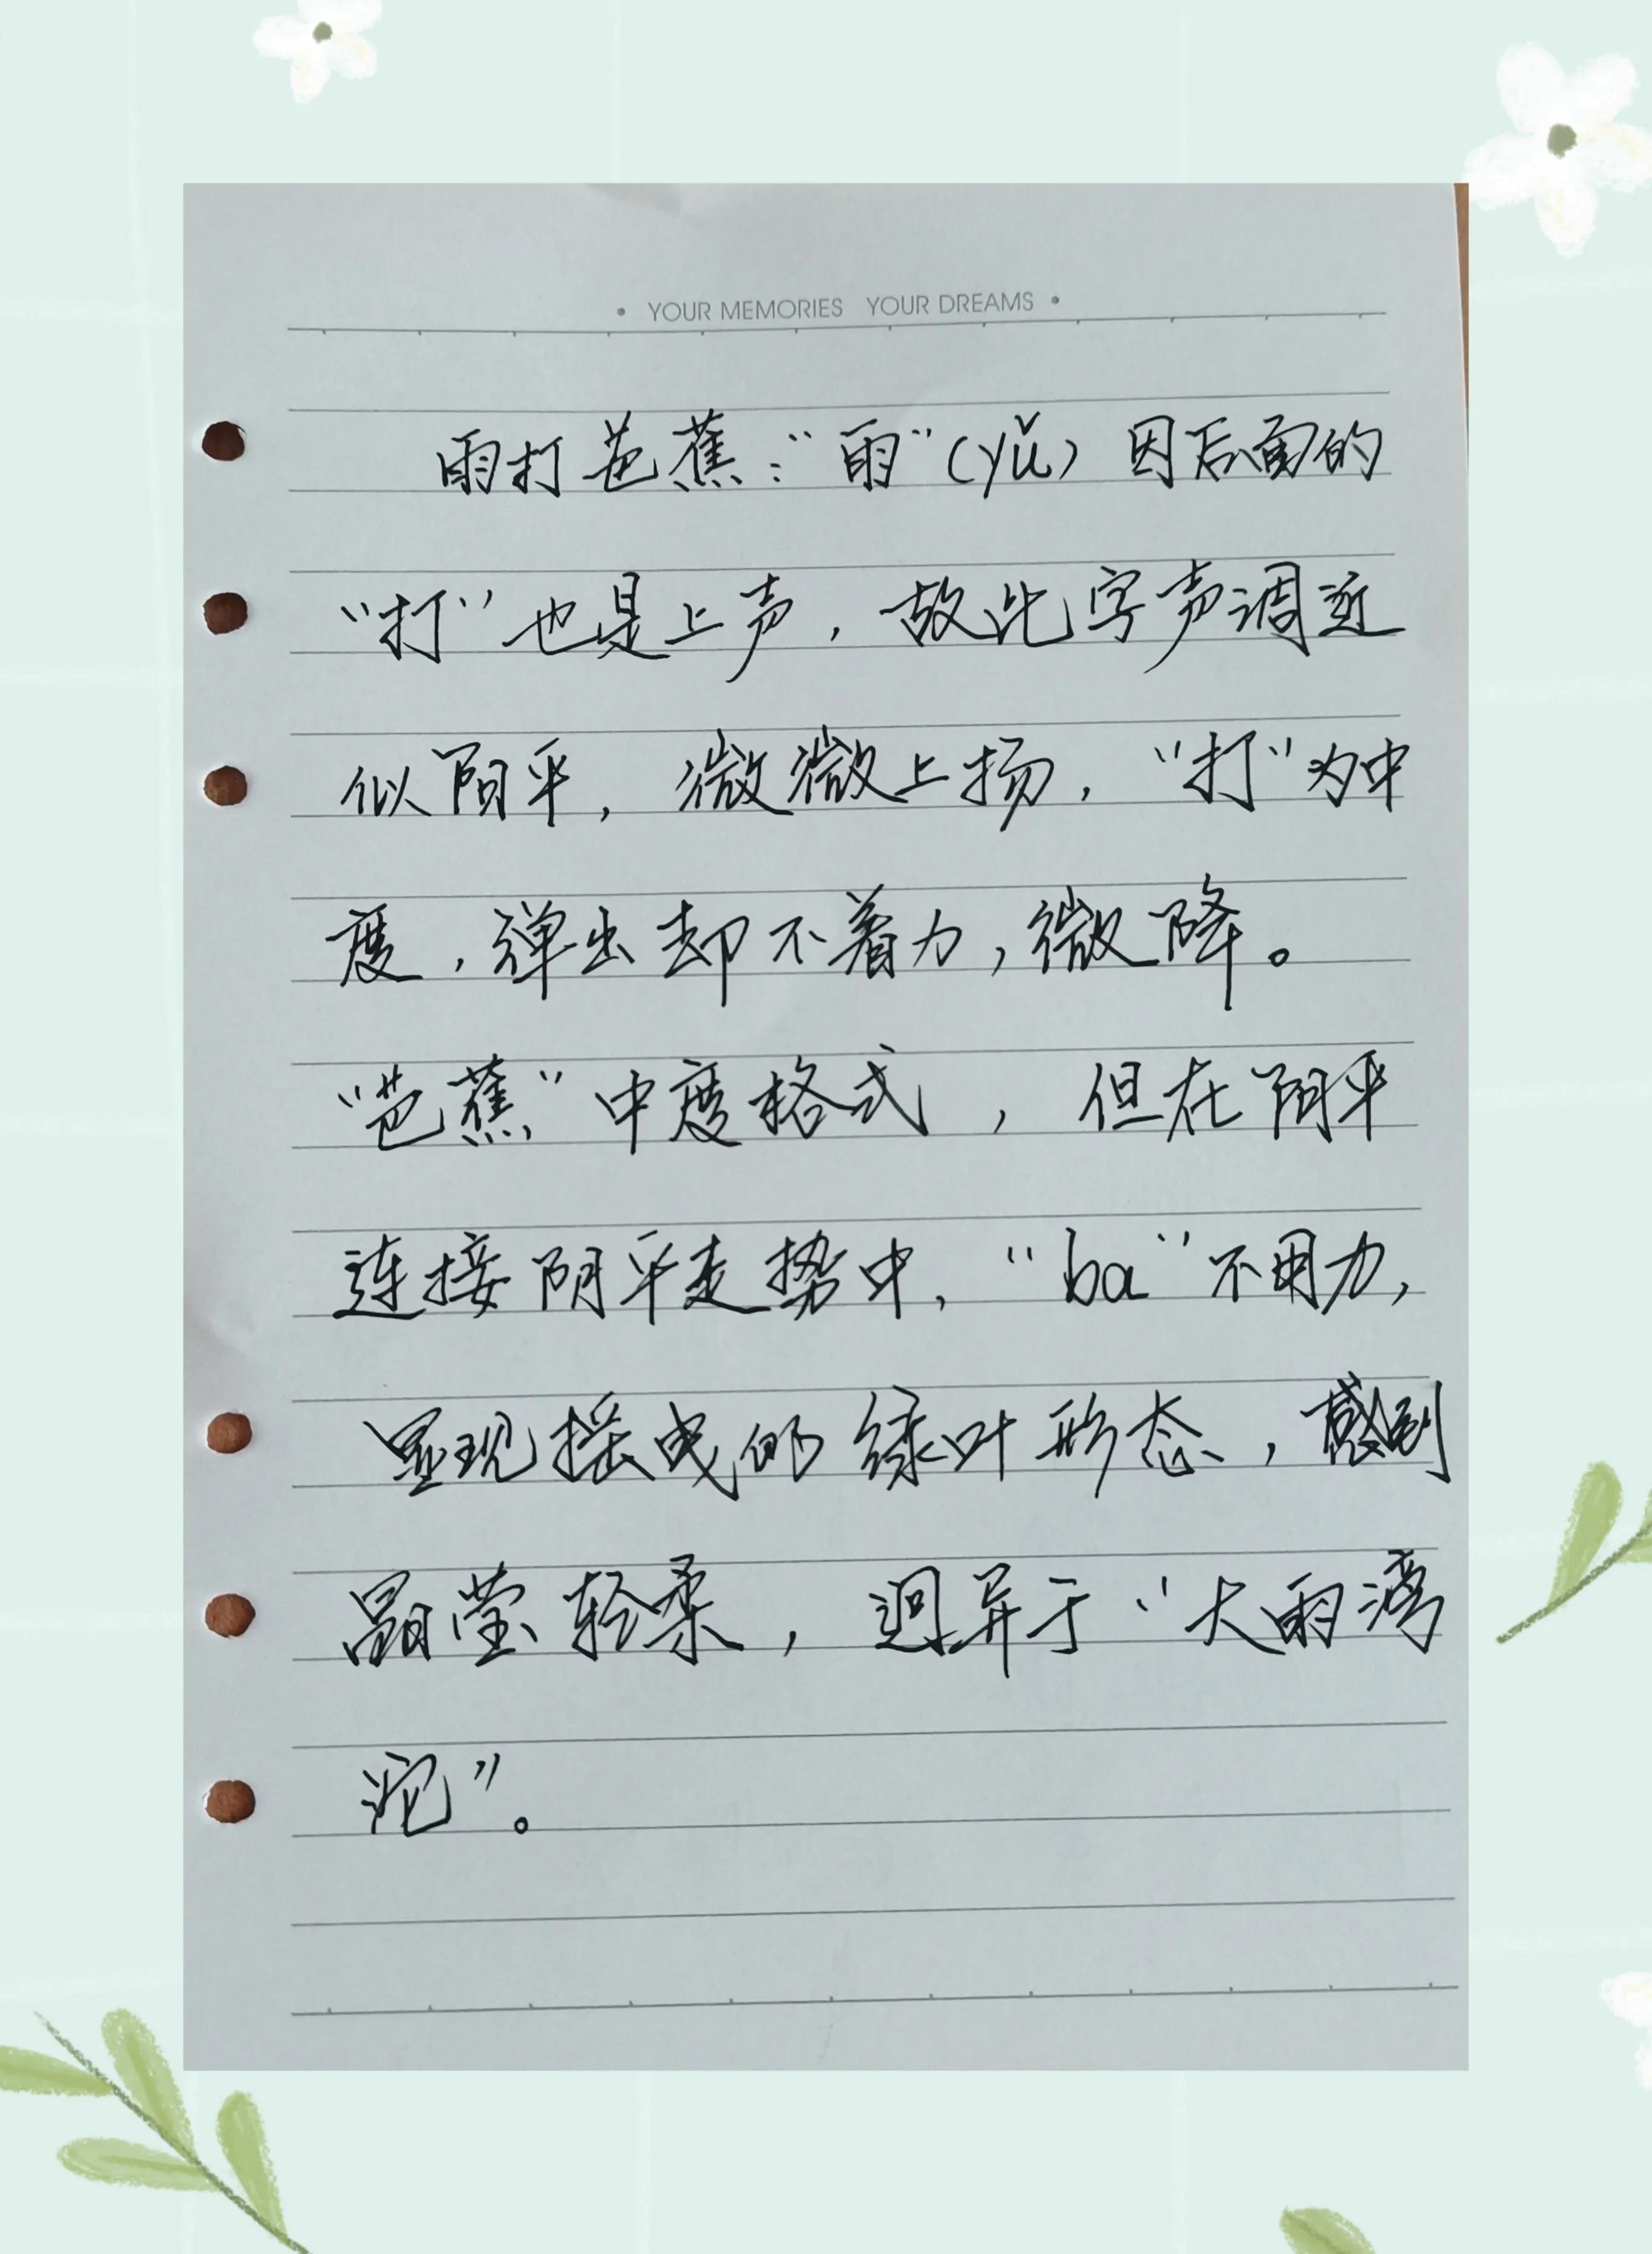 • YOUR MEMORIES YOUR DREAMS •
雨打芭蕉：“雨”（yǔ）因后面的
“打”也是上声，故此字声调近
似阳平，微微上扬，“打”为中
度，弹出却不着力，微降。
“芭蕉”中度格式，但在阳平
连接阴平走势中，“ba”不用力，
显现摇曳的绿叶形态，感到
晶莹轻柔，迥异于“大雨滂
沱”。